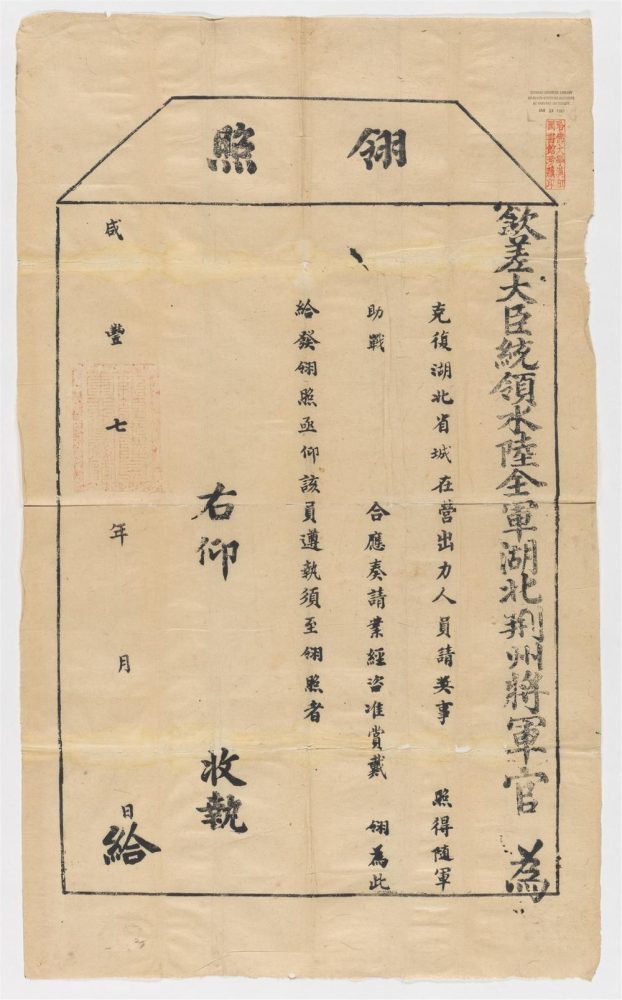 翎照
欽差大臣統領水陸全軍湖北荆州將軍官 為
克復湖北省城在營出力人員請奬事 照得隨軍
助戰 合應奏請業經咨准賞戴 翎為此
給發翎照亟仰該員遵執須至翎照者
右仰 收執
咸豐七年 月 日給
哈佛大學漢和
圖書館珍藏印